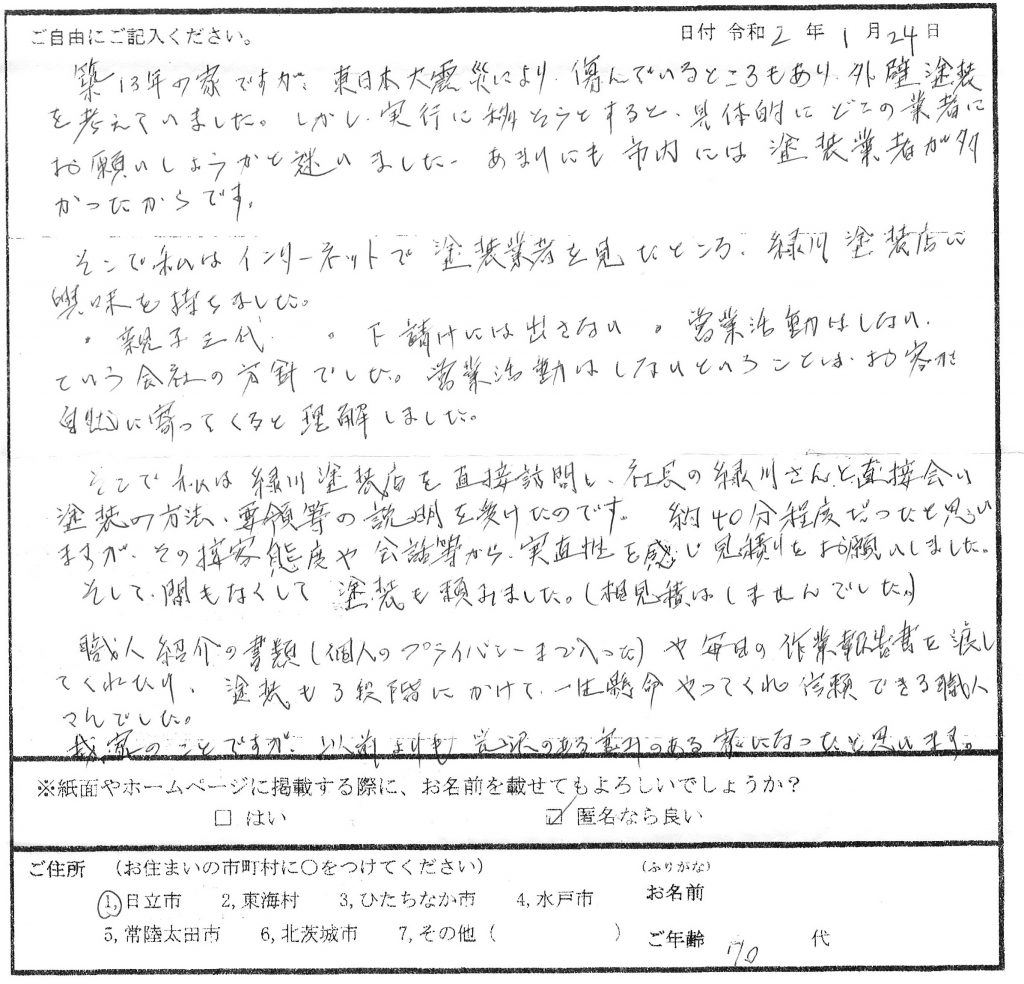 ご自由にご記入ください。 日付 令和 2 年 1 月 24 日
築13年の家ですが、東日本大震災により、傷んでいるところもあり、外壁塗装
を考えていました。しかし、実行に移そうとすると、具体的にどこの業者に
お願いしようかと迷いました。あまりにも市内には塗装業者が多
かったからです。
そこで私はインターネットで塗装業者を見たところ、緑川塗装店に
興味を持ちました。
・親子三代 ・下請けには出さない ・営業活動はしない、
という会社の方針でした。営業活動はしないということは、お客が
自然に寄ってくると理解しました。
そこで私は緑川塗装店を直接訪問し、社長の緑川さんと直接会い
塗装の方法、要領等の説明を受けたのです。約40分程度だったと思い
ますが、その接客態度や会話等から、実直性を感じ見積りをお願いしました。
そして、間もなくして塗装も頼みました。(相見積はしませんでした。)
職人紹介の書類(個人のプライバシーまで入った)や毎日の作業報告書を渡し
てくれたり、塗装も3段階にかけて、一生懸命やってくれ信頼できる職人
さんでした。
我家のことですが、以前よりも光沢のある重みのある家になったと思います。
※紙面やホームページに掲載する際に、お名前を載せてもよろしいでしょうか?
□ はい ☑ 匿名なら良い
ご住所 (お住まいの市町村に○をつけてください) (ふりがな)
1,日立市 2,東海村 3,ひたちなか市 4,水戸市 お名前
5,常陸太田市 6,北茨城市 7,その他 ( ) ご年齢 70 代